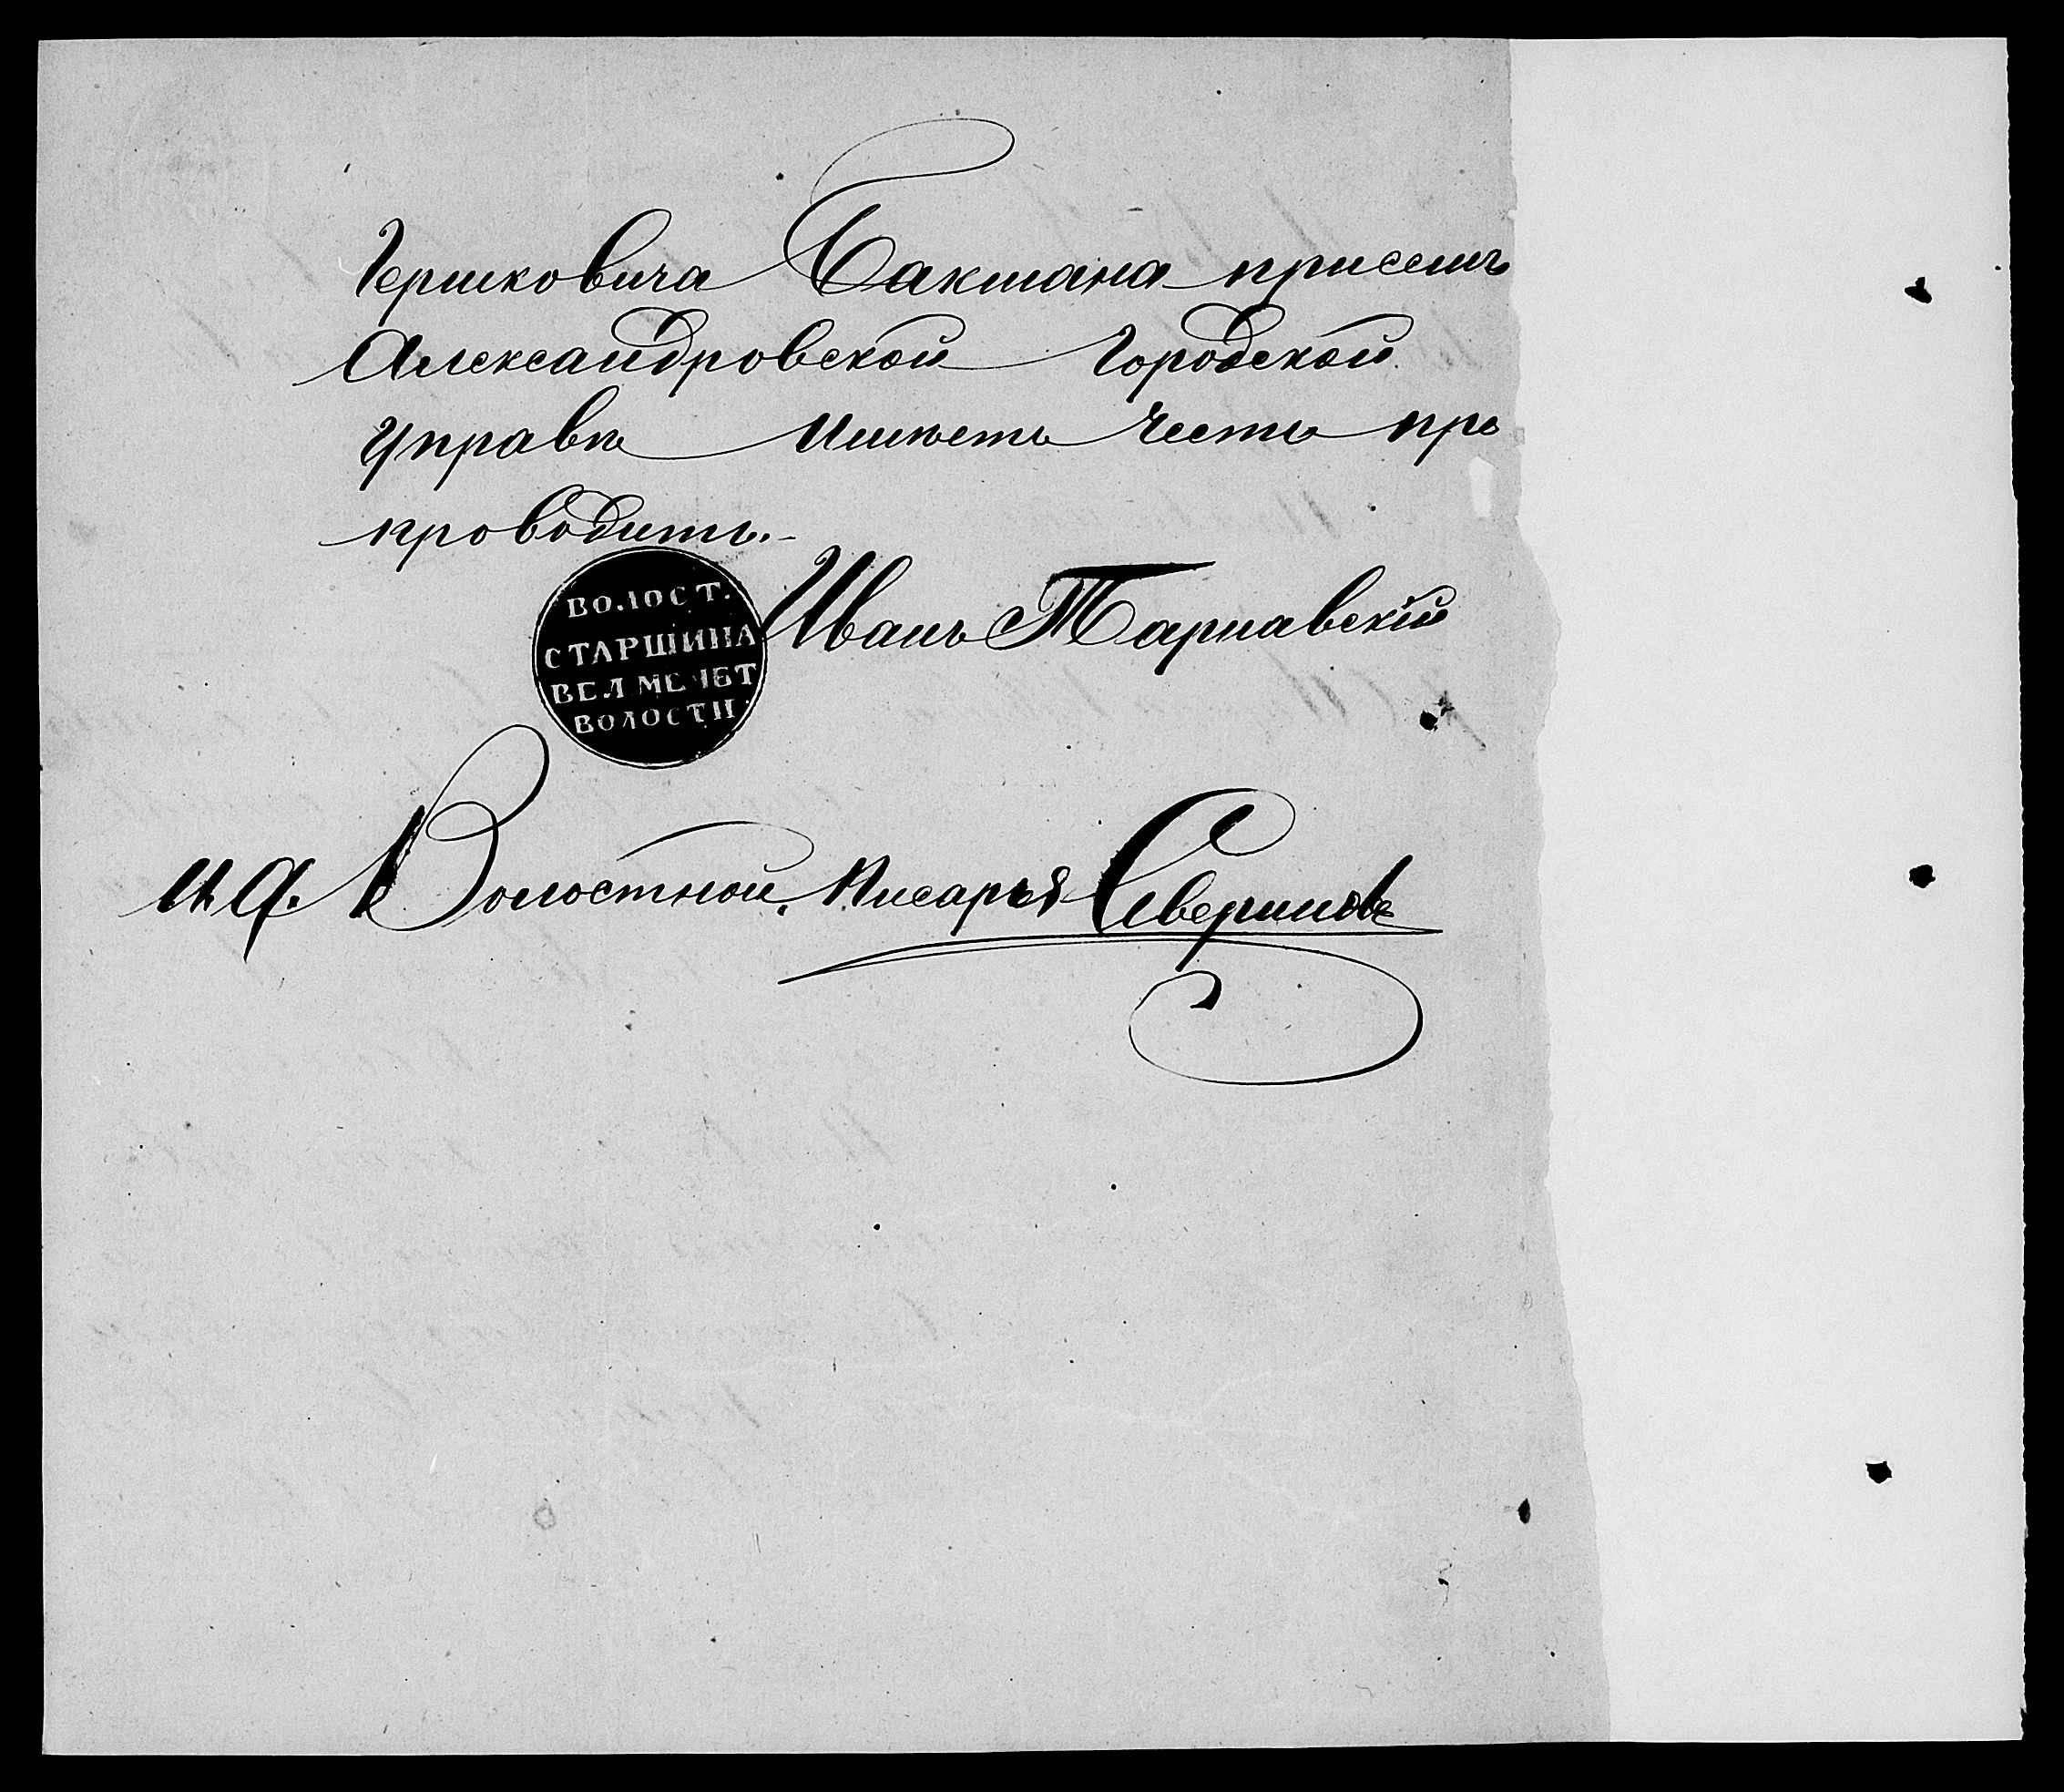 Гершковича Бакшана присемъ
Александровской Городской
Управѣ имѣетъ честь пре
проводить.-
ВОЛОСТ.
СТАРШИНА
ВЕЛ МЕЧЕТ
ВОЛОСТИ
Иванъ Тарнавскій
И. д. Волостной Писарья Северинов